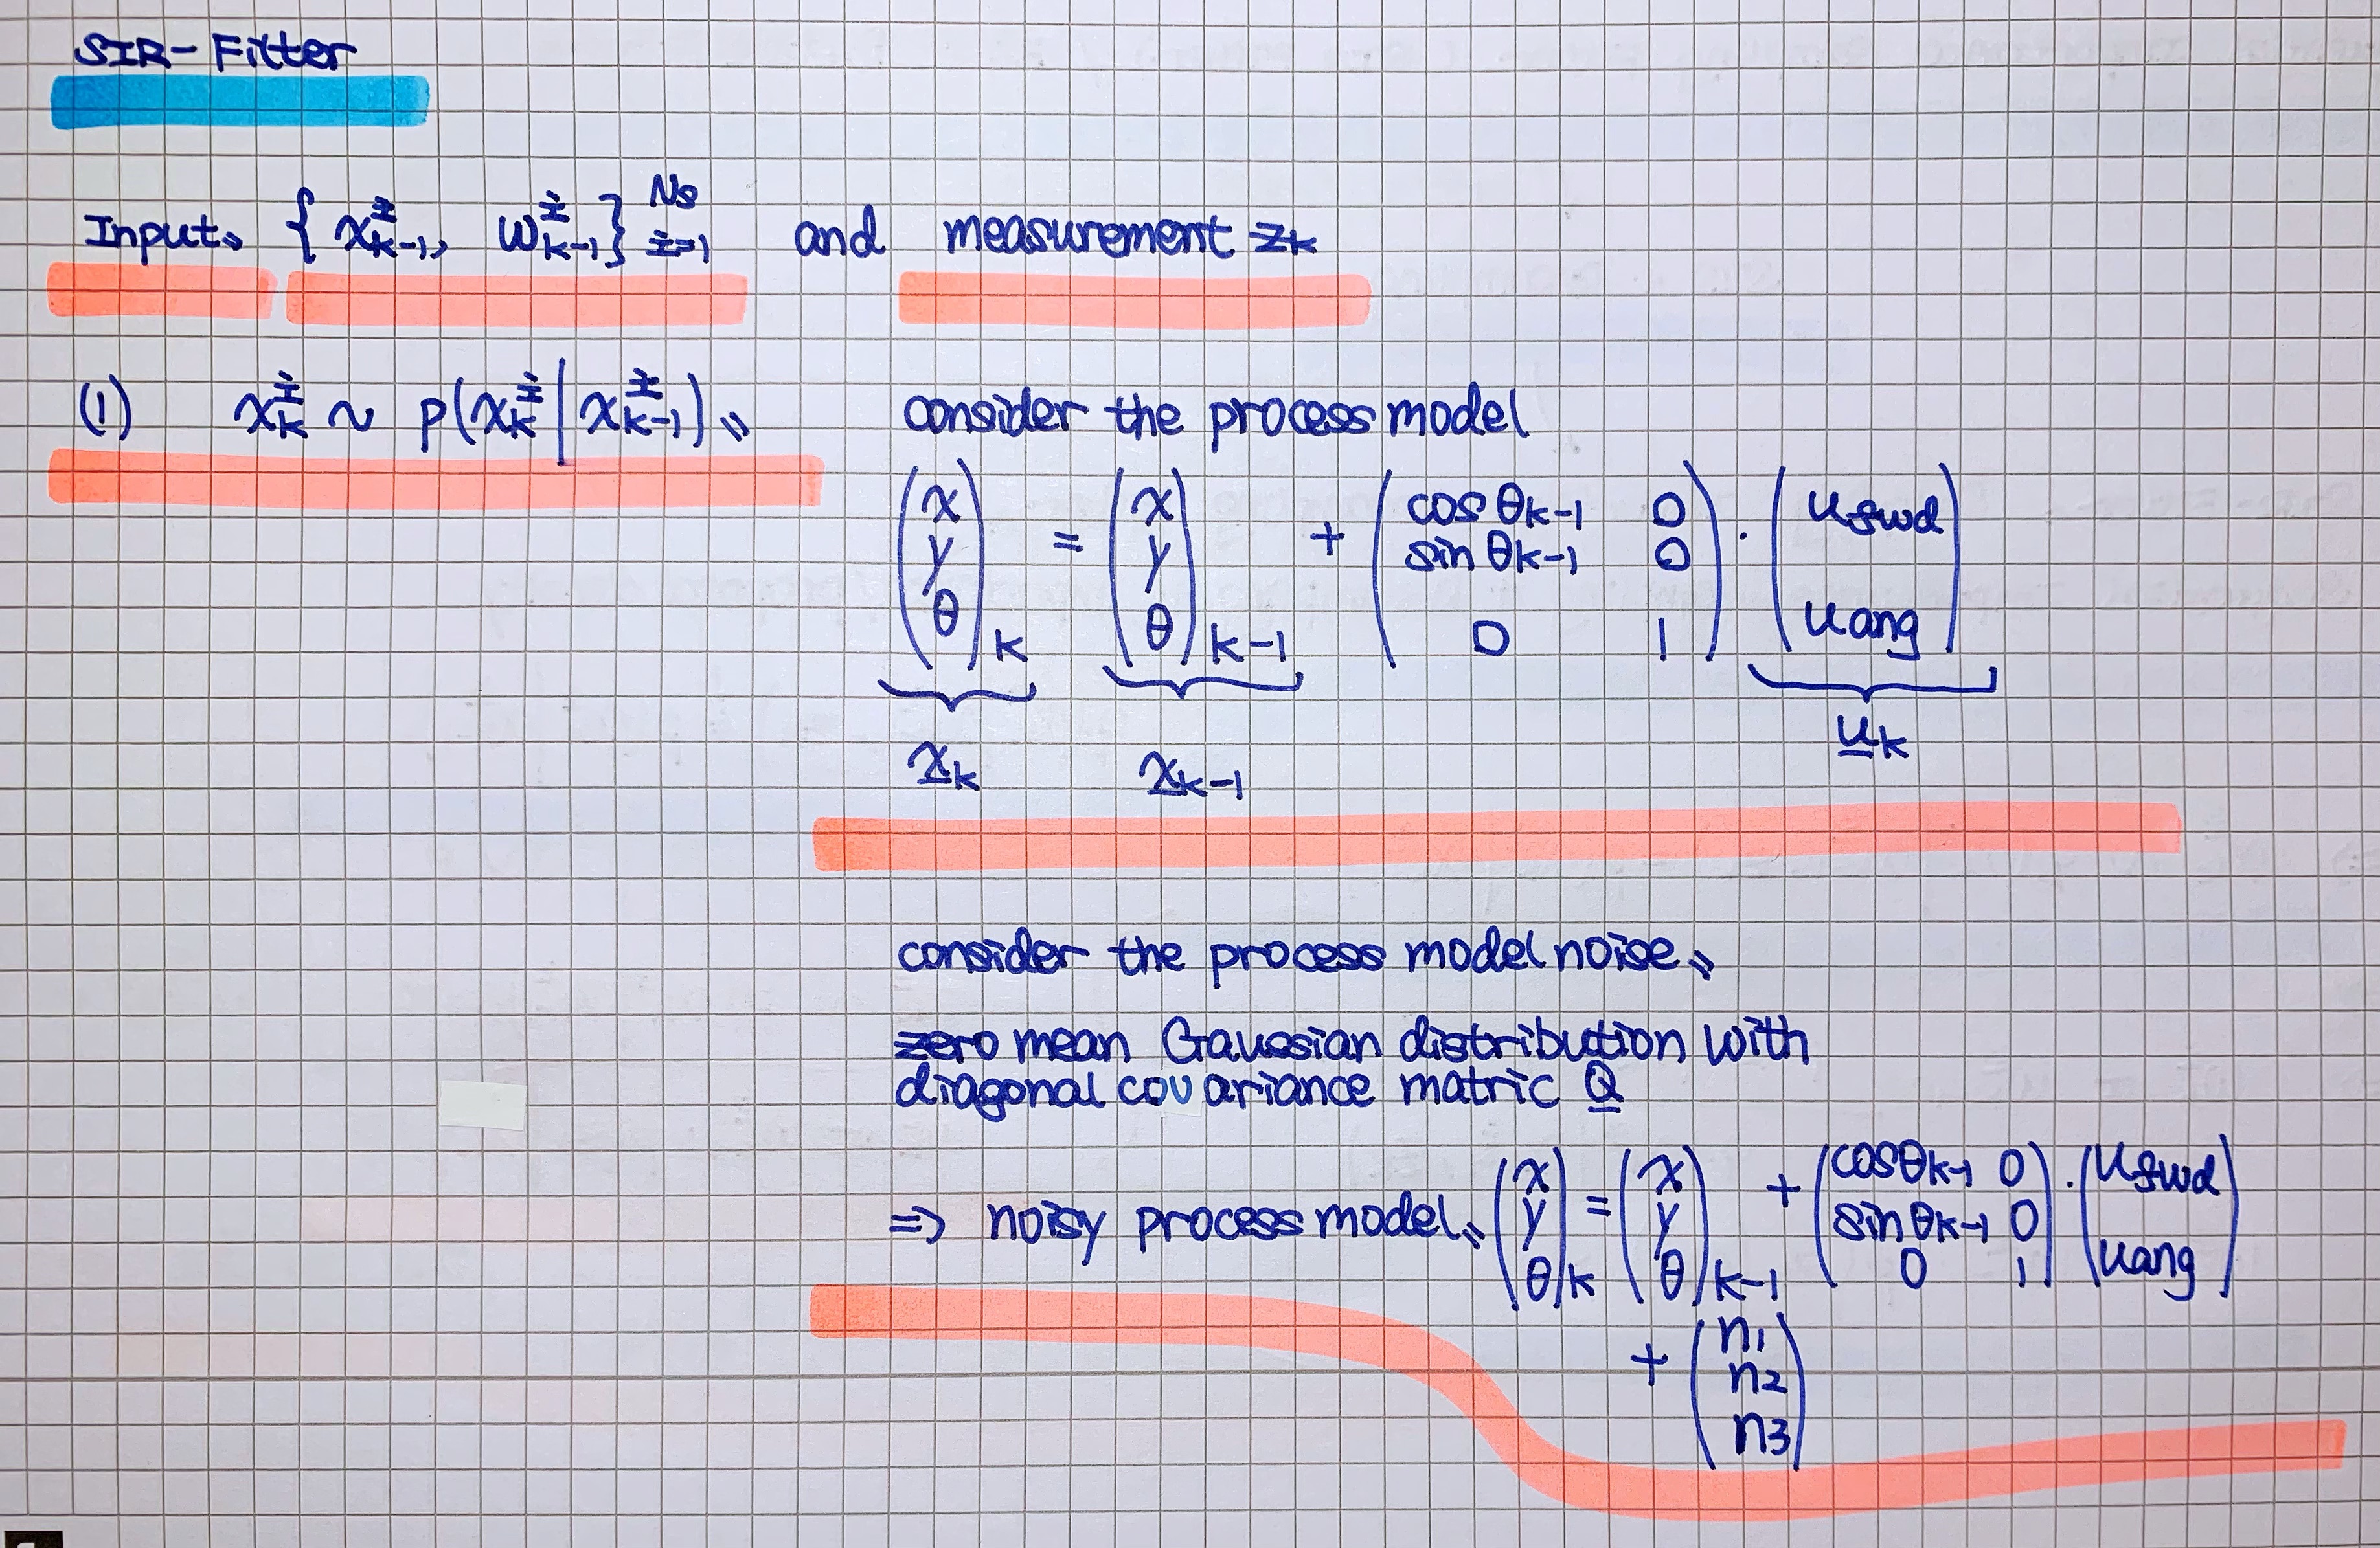 SIR-Filter
Input, { x^i_{k-1}, w^i_{k-1} }^{Ns}_{i=1} and measurement z_k
(1) x^i_k ~ p(x^i_k | x^i_{k-1}), consider the process model
(x y θ)_k = (x y θ)_{k-1} + (cos θ_{k-1} 0 sin θ_{k-1} 0 0 1) · (u_fwd u_ang)
x_k x_{k-1} u_k
consider the process model noise,
zero mean Gaussian distribution with
diagonal covariance matric Q
=> noisy process model, (x y θ)_k = (x y θ)_{k-1} + (cosθ_{k-1} 0 sinθ_{k-1} 0 0 1) · (u_fwd u_ang)
+ (n1 n2 n3)